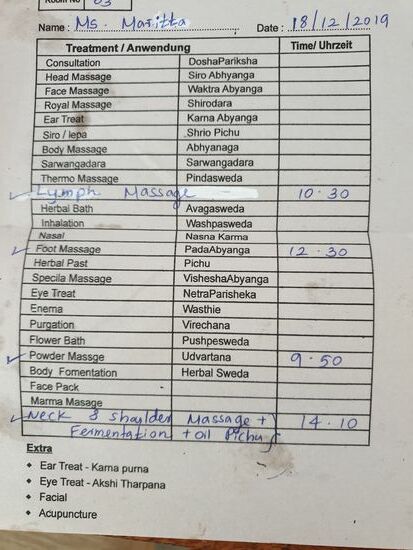 Room No 03
Name : Ms. Maritta Date : 18/12/2019
Treatment / Anwendung Time/ Uhrzeit
Consultation DoshaPariksha
Head Massage Siro Abhyanga
Face Massage Waktra Abyanga
Royal Massage Shirodara
Ear Treat Karna Abyanga
Siro / lepa Shrio Pichu
Body Massage Abhyanaga
Sarwangadara Sarwangadara
Thermo Massage Pindasweda
✓ Lymph Massage 10.30
Herbal Bath Avagasweda
Inhalation Washpasweda
Nasal Nasna Karma
✓ Foot Massage PadaAbyanga 12.30
Herbal Past Pichu
Specila Massage VisheshaAbyanga
Eye Treat NetraParisheka
Enema Wasthie
Purgation Virechana
Flower Bath Pushpesweda
✓ Powder Massge Udvartana 9.50
Body Fomentation Herbal Sweda
Face Pack
Marma Masage
✓ Neck & shoulder Massage + 14.10
Fermentation + oil Pichu
Extra
Ear Treat - Karna purna
Eye Treat - Akshi Tharpana
Facial
Acupuncture